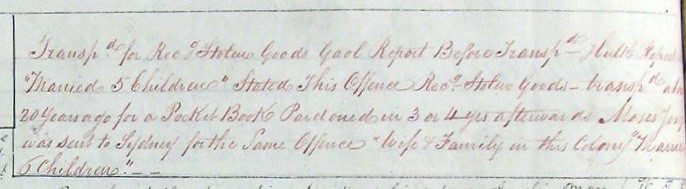 Transpd for Recg Stolen Goods Gaol Report Before Transpd Hulk Report
"Married 5 Children" Stated This Offence Recg Stolen Goods – transpd abt
20 Years ago for a Pocket Book Pardoned in 3 or 4 yrs afterwards Moses
was sent to Sydney for the Same Offence "Wife & Family in this Colony" Married
6 Children" – –